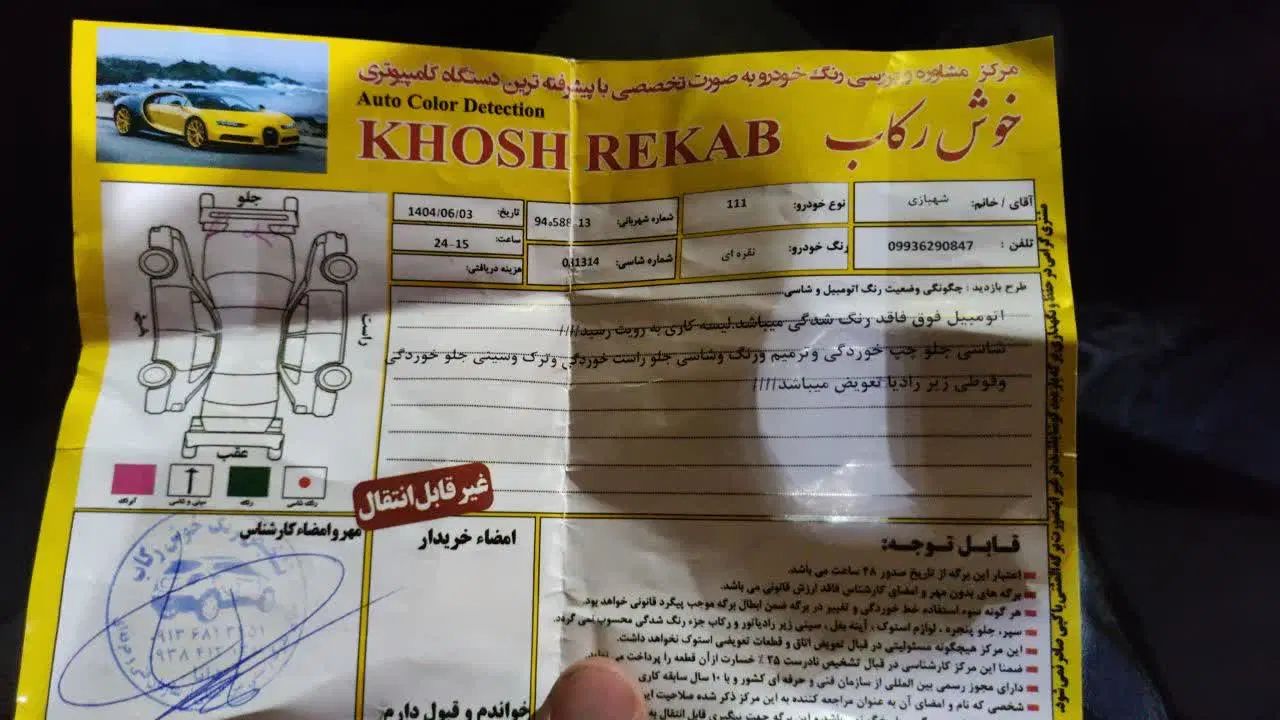 مرکز مشاوره و بررسی رنگ خودرو به صورت تخصصی با پیشرفته ترین دستگاه کامپیوتری
Auto Color Detection
KHOSH REKAB
خوش رکاب
آقای / خانم: شهبازی
نوع خودرو: 111
شماره شهربانی:
تاریخ: 1404/06/03
تلفن : 09936290847
رنگ خودرو: نقره ای
شماره شاسی: 031314
ساعت: 24-15
هزینه دریافتی:
جلو
راست
چپ
عقب
رنگ شاسی
رنگ
سینی و شاسی
طرح بازدید : چگونگی وضعیت رنگ اتومبیل و شاسی.
اتومبیل فوق فاقد رنگ شدگی میباشد.لیسه کاری به رویت رسید////
شاسی جلو چپ خوردگی وترمیم ورنگ وشاسی جلو راست خوردگی وترک وسینی جلو خوردگی
وقوطی زیر رادیا تعویض میباشد////
غیر قابل انتقال
مهر و امضاء کارشناس
امضاء خریدار
خواندم و قبول دارم
قابل توجه:
اعتبار این برگه از تاریخ صدور ۴۸ ساعت می باشد.
برگه های بدون مهر و امضای کارشناس فاقد ارزش قانونی می باشد.
هر گونه سوء استفاده خط خوردگی و تغییر در برگه ضمن ابطال برگه موجب پیگرد قانونی خواهد بود.
سپر، جلو پنجره ، لوازم استوک ، آینه بغل ، سینی زیر رادیاتور و رکاب جزء رنگ شدگی محسوب نمی گردد.
این مرکز هیچگونه مسئولیتی در قبال تعویض اتاق و قطعات تعویضی استوک نخواهد داشت.
ضمنا این مرکز کارشناسی در قبال تشخیص نادرست ۲۵ ٪ خسارت از آن قطعه را پرداخت می نماید.
دارای مجوز رسمی بین المللی از سازمان فنی و حرفه ای کشور و با ۱۰ سال سابقه کاری
شخصی که نام و امضای آن به عنوان مراجعه کننده به این مرکز ذکر شده صلاحیت